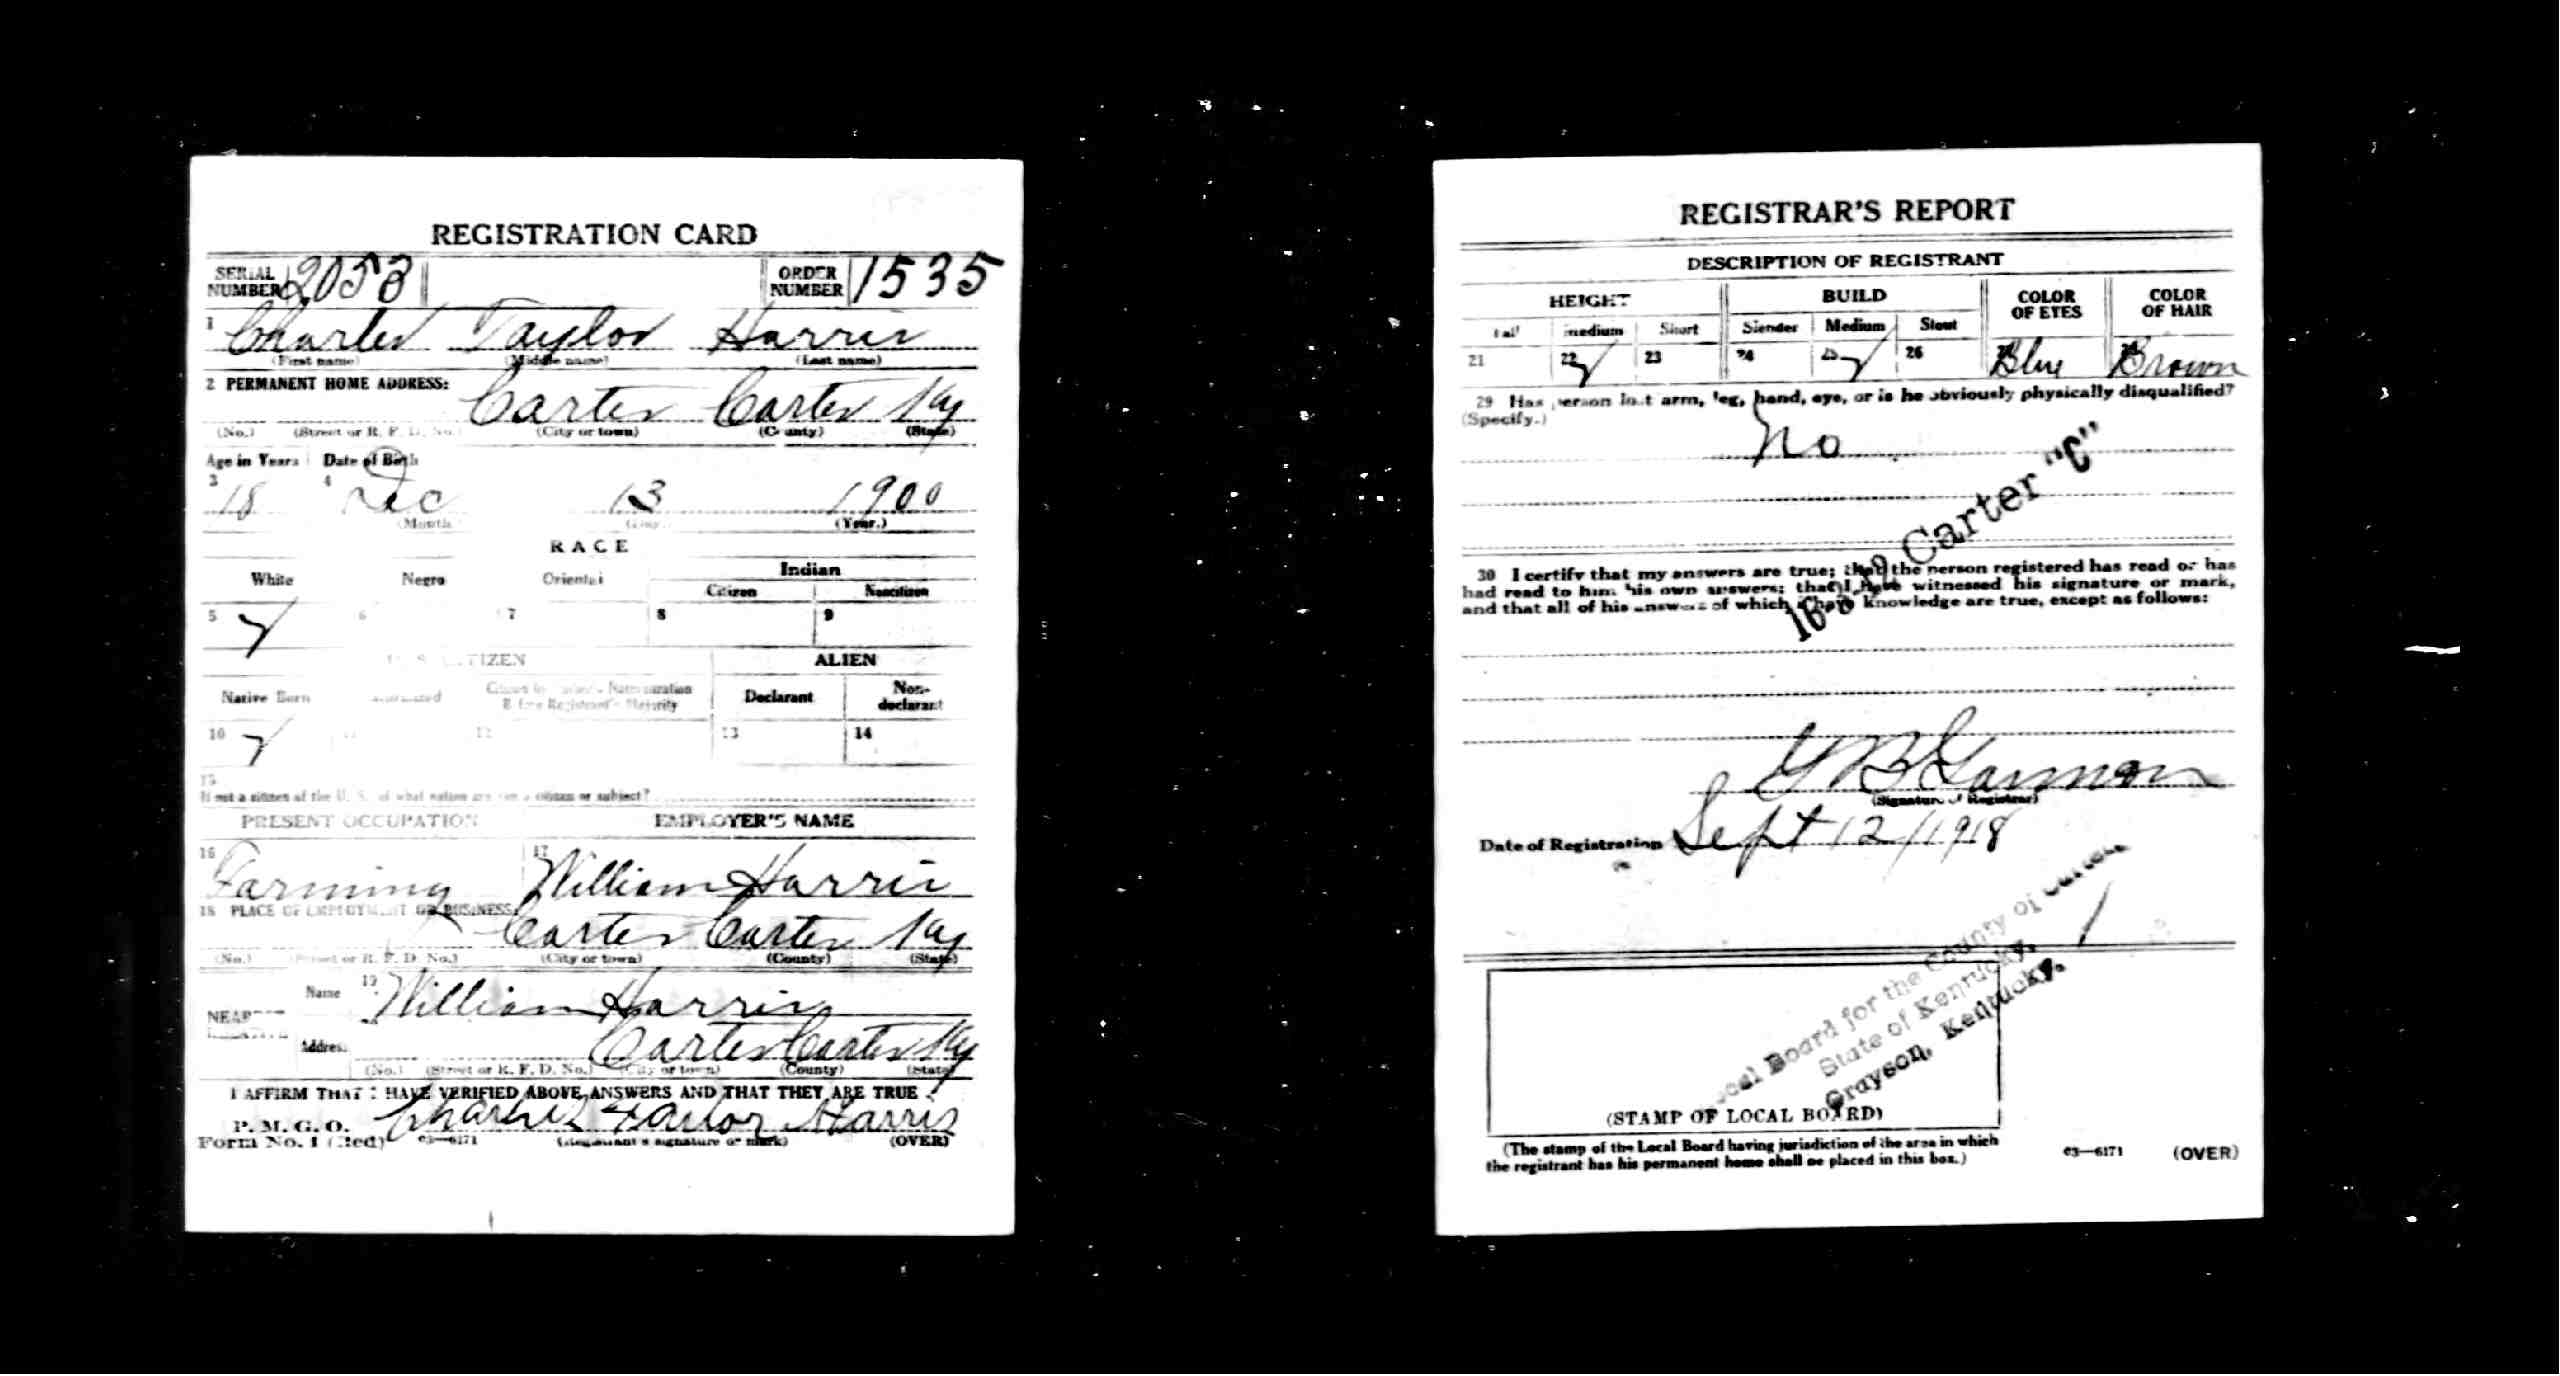 REGISTRATION CARD
SERIAL NUMBER 2053 ORDER NUMBER 1535
1 Charles Taylor Harris
(First name) (Middle name) (Last name)
2 PERMANENT HOME ADDRESS: Carter Carter Ky
(No.) (Street or R. F. D. No.) (City or town) (County) (State)
Age in Years Date of Birth
3 18 4 Dec 13 1900
(Month) (Day.) (Year.)
RACE
White Negro Oriental Indian
Citizen Noncitizen
5 6 7 8 9
U. S. CITIZEN ALIEN
Native Born Citizen Naturalization Before Registrant's Majority Declarant Non-declarant
10 12 13 14
15
If not a citizen of the U. S., of what nation are you a citizen or subject?
PRESENT OCCUPATION EMPLOYER'S NAME
16 Farming 17 William Harris
18 PLACE OF EMPLOYMENT OR BUSINESS: Carter Carter Ky
(No.) (Street or R. F. D. No.) (City or town) (County) (State)
Name 19 William Harris
Address Carter Carter Ky
(No.) (Street or R. F. D. No.) (City or town) (County) (State)
I AFFIRM THAT I HAVE VERIFIED ABOVE ANSWERS AND THAT THEY ARE TRUE
P. M. G. O.
Form No. 1 (Red) 03—6171 Charles Tailor Harris
(Registrant's signature or mark) (OVER)
REGISTRAR'S REPORT
DESCRIPTION OF REGISTRANT
HEIGHT BUILD COLOR OF EYES COLOR OF HAIR
Tall Medium Short Slender Medium Stout
21 22 23 24 25 26 Blue Brown
29 Has person lost arm, leg, hand, eye, or is he obviously physically disqualified?
(Specify.)
No
16-3-12 Carter "C"
30 I certify that my answers are true; that the person registered has read or has
had read to him his own answers; that I have witnessed his signature or mark,
and that all of his answers of which I have knowledge are true, except as follows:
(Signature of Registrar)
Date of Registration Sept 12/1918
Local Board for the County of Carter
State of Kentucky,
Grayson, Kentucky.
1
(STAMP OF LOCAL BOARD)
(The stamp of the Local Board having jurisdiction of the area in which
the registrant has his permanent home shall be placed in this box.)
03—6171 (OVER)